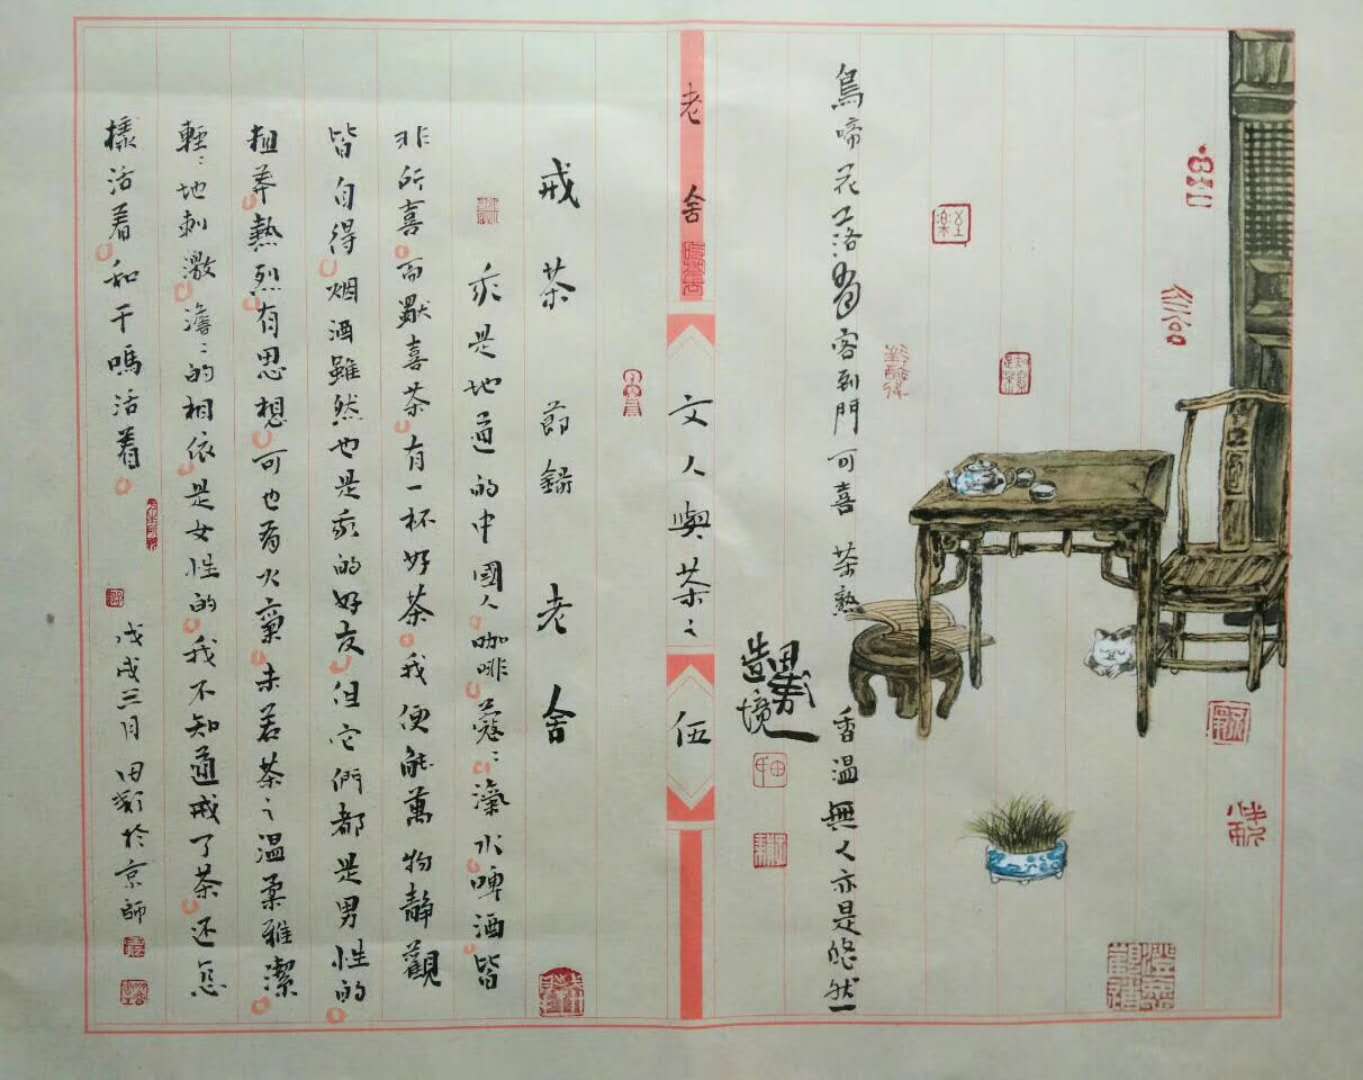 鳥啼花落有客到門可喜 茶熟香温無人亦是悠然
造境
老舍
文人與茶之
伍
戒茶 節錄 老舍
我是地道的中國人咖啡蔻蔻汽水啤酒皆
非所喜而獨喜茶有一杯好茶我便能萬物靜觀
皆自得烟酒雖然也是我的好友但它們都是男性的
粗莽熱烈有思想可也有火氣未若茶之温柔雅潔
輕輕地刺激澹澹的相依是女性的我不知道戒了茶还怎
樣活着和干嗎活着
戊戌三月田影於京師